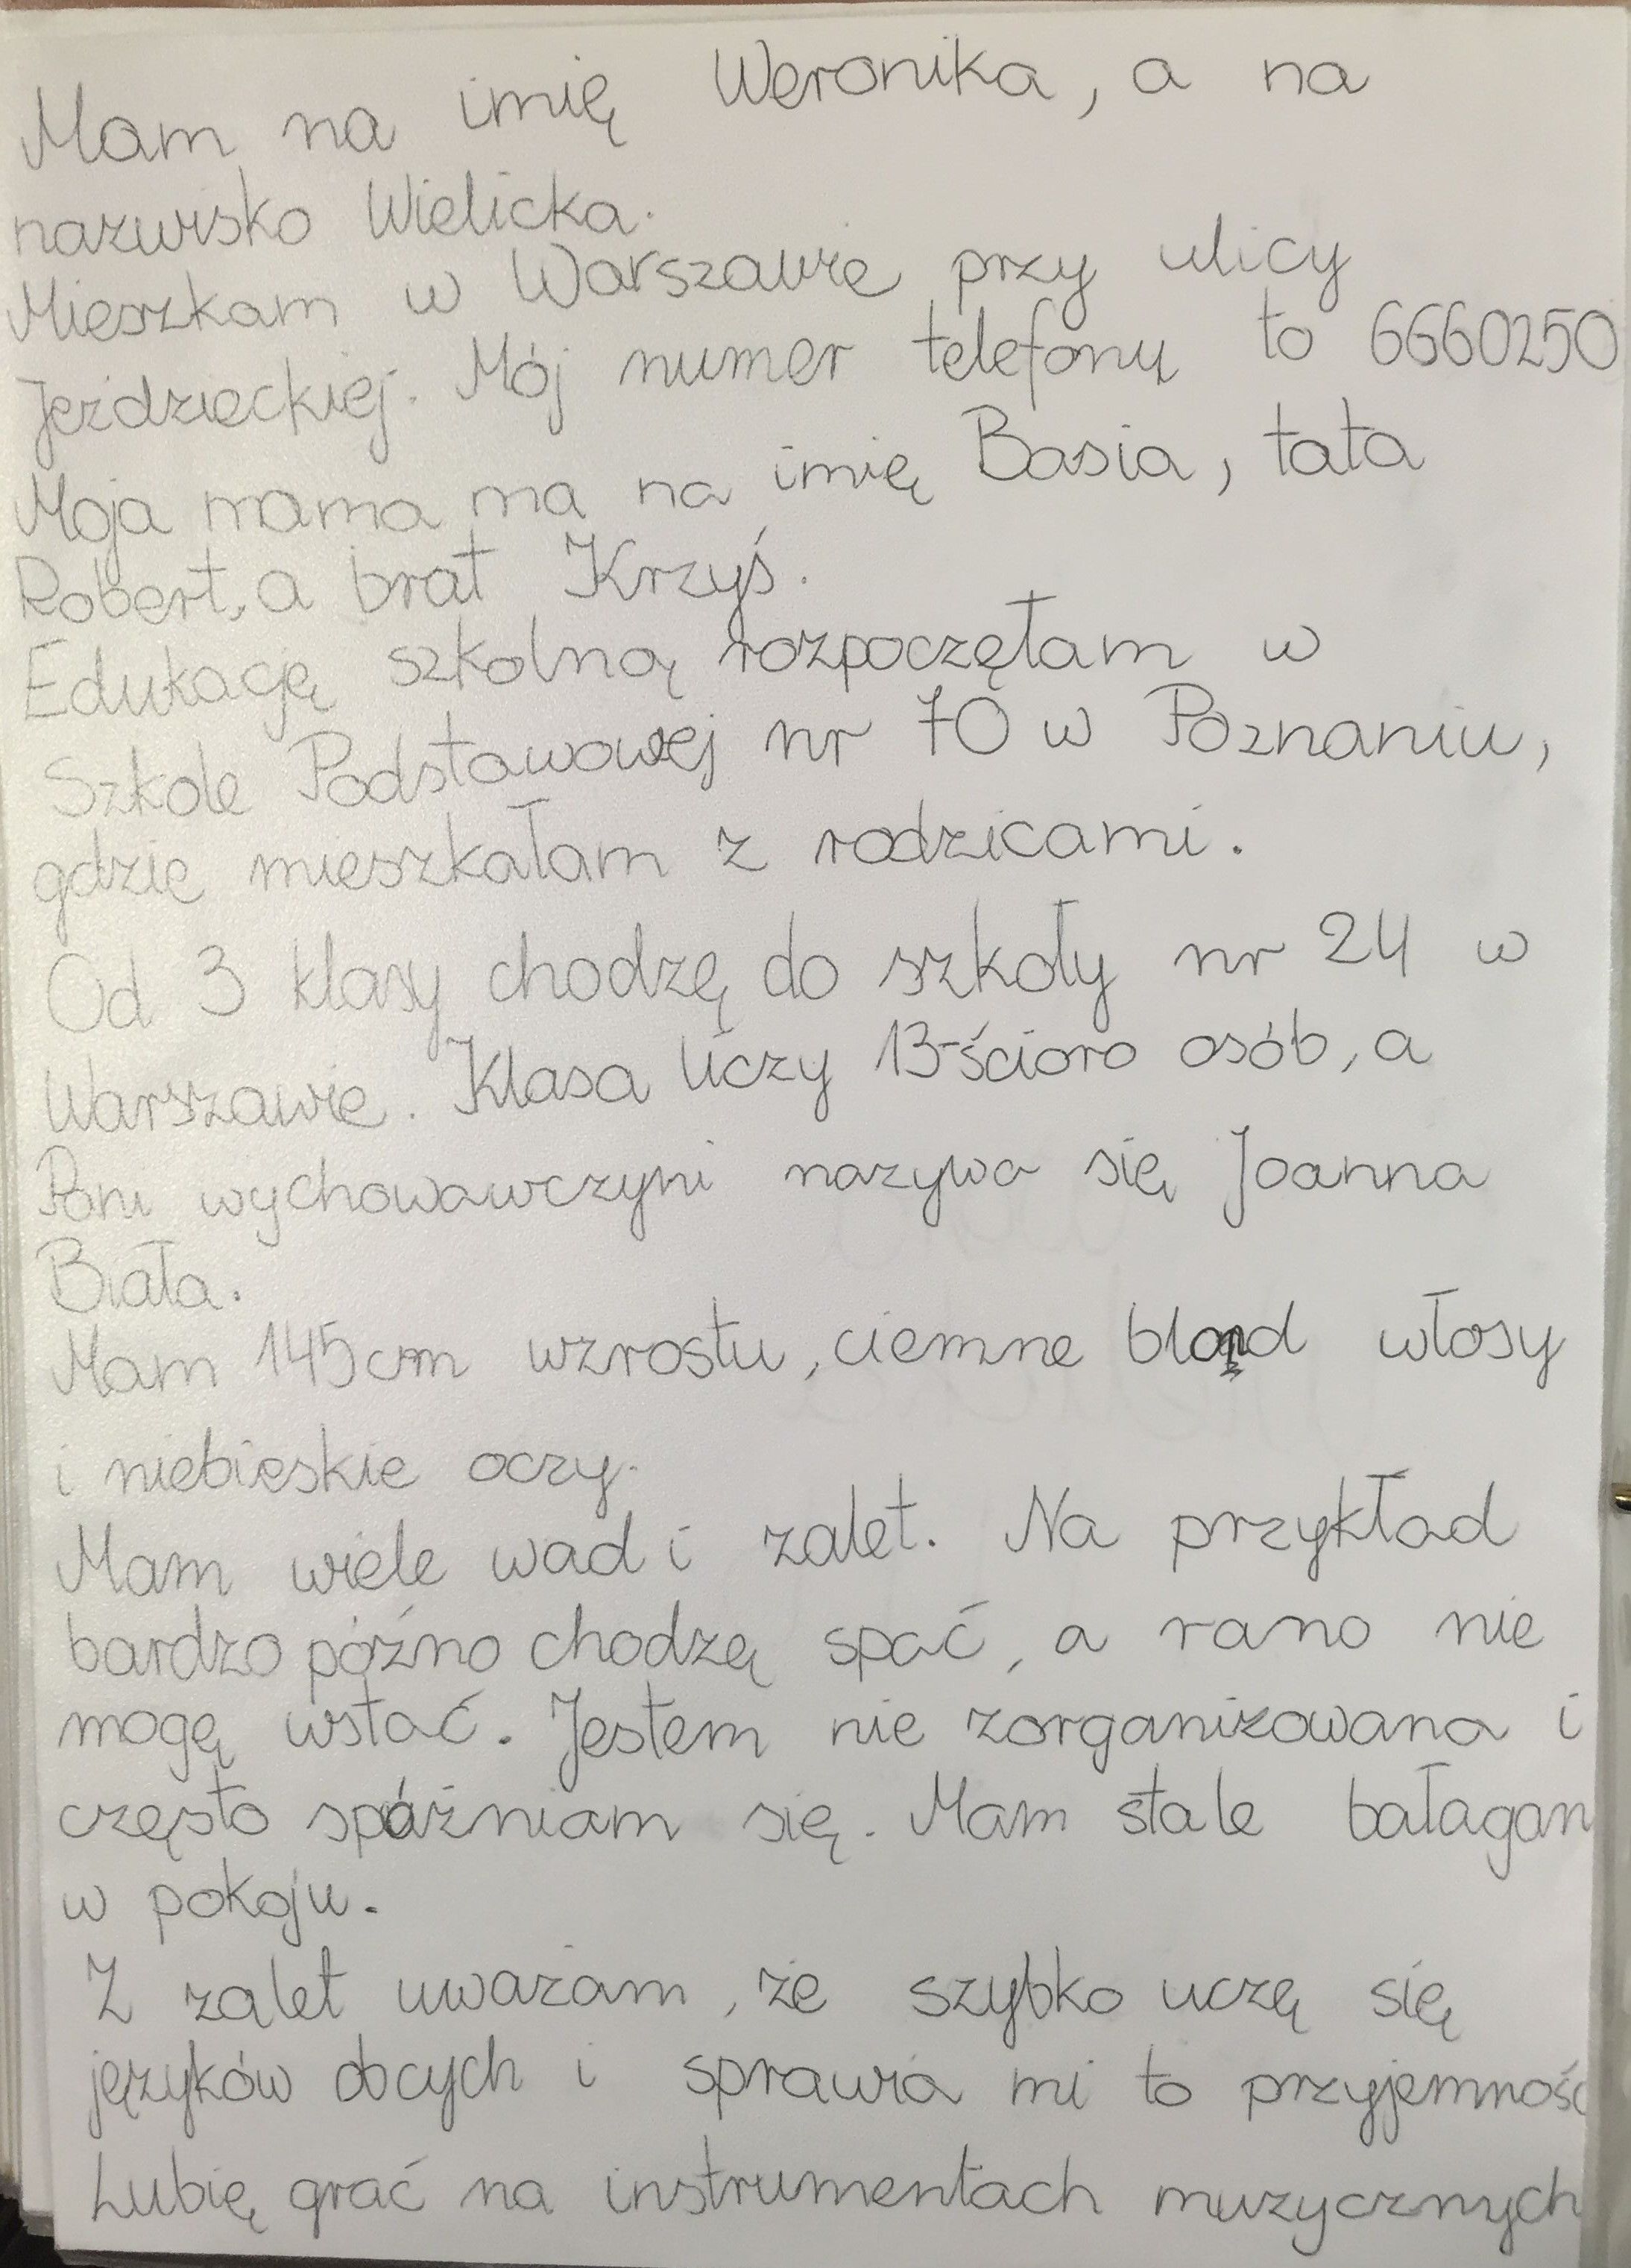 Mam na imię Weronika, a na
nazwisko Wielicka.
Mieszkam w Warszawie przy ulicy
Jeździeckiej. Mój numer telefonu to 6660250
Moja mama ma na imię Basia, tata
Robert, a brat Krzyś.
Edukację szkolną rozpoczętam w
Szkole Podstawowej nr 70 w Poznaniu,
gdzie mieszkałam z rodzicami.
Od 3 klasy chodzę do szkoły nr 24 w
Warszawie. Klasa liczy 13-ścioro osób, a
Pani wychowawczyni nazywa się Joanna
Biała.
Mam 145cm wzrostu, ciemne blond włosy
i niebieskie oczy.
Mam wiele wad i zalet. Na przykład
bardzo późno chodzę spać, a rano nie
mogę wstać. Jestem nie zorganizowana i
często spóźniam się. Mam stale bałagan
w pokoju.
Z zalet uważam, że szybko uczę się
języków obcych i sprawia mi to przyjemność
Lubię grać na instrumentach muzycznych